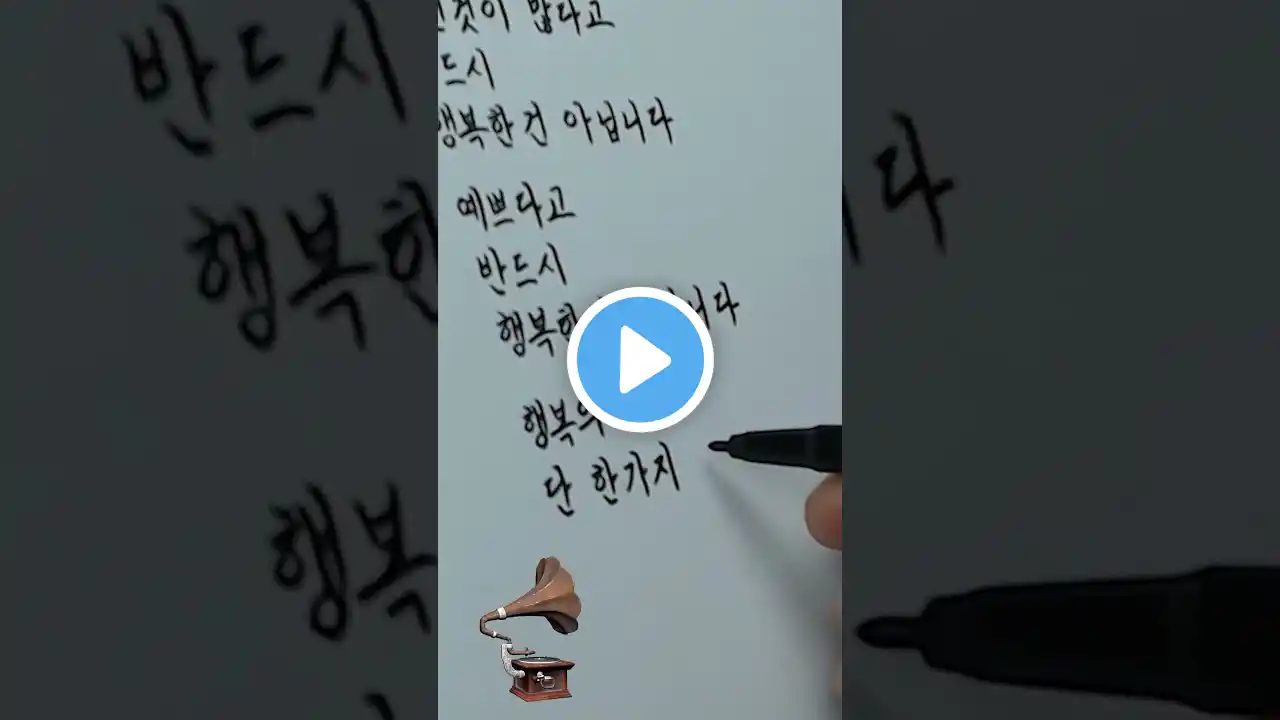 것이 많다고
드시
행복한건 아닙니다
예쁘다고
반드시
행복한 니다
행복의
단 한가지